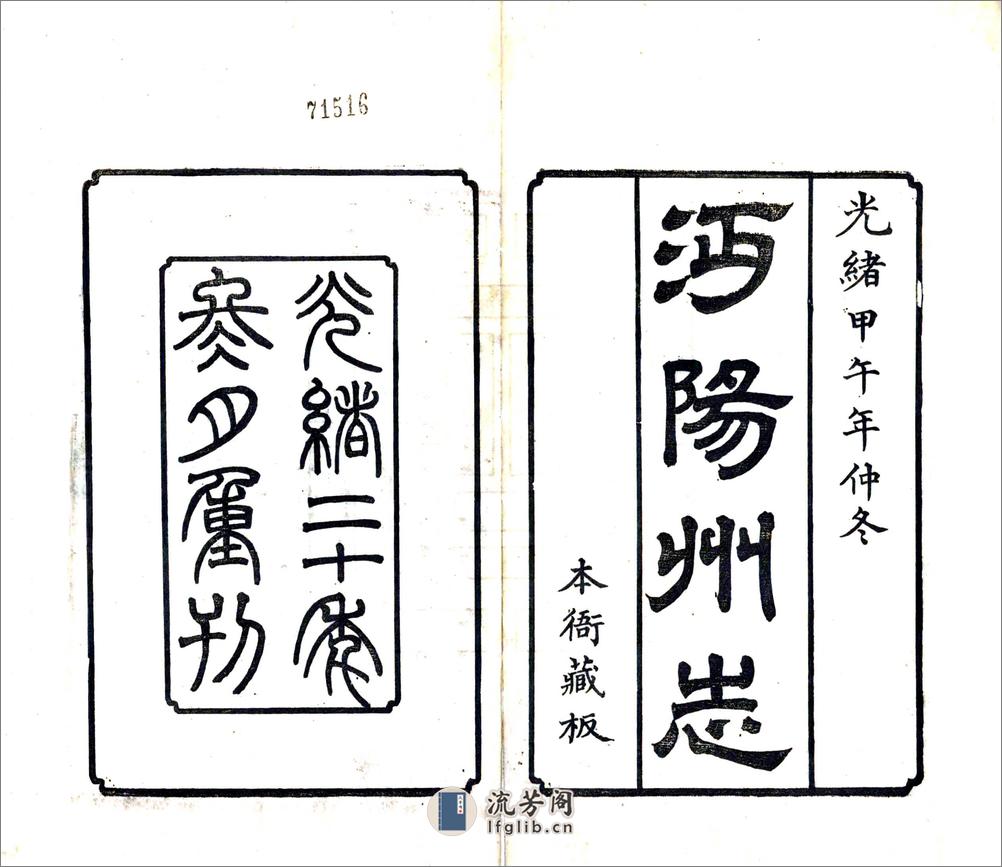 光緒甲午年仲冬
沔陽州志
本衙藏板
71516
光緒二十年
參月重刊
流芳阁
lfglib.cn